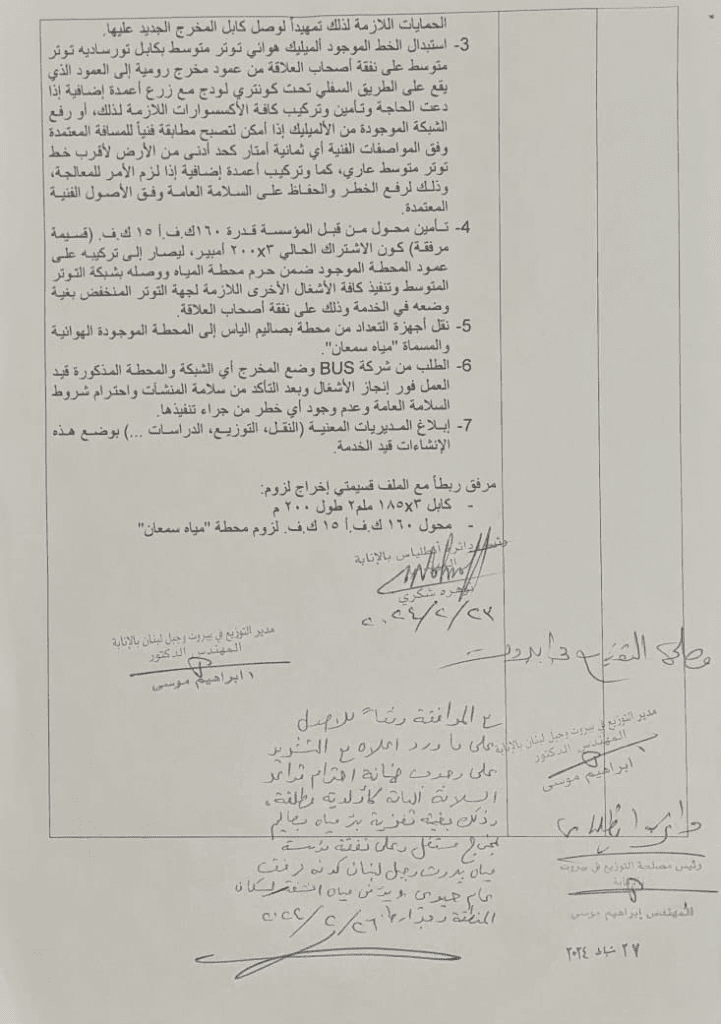 الحمايات اللازمة لذلك تمهيداً لوصل كابل المخرج الجديد عليها.
3- استبدال الخط الموجود ألميليك هوائي توتر متوسط بكابل تورساديه توتر
متوسط على نفقة أصحاب العلاقة من عمود مخرج رومية إلى العمود الذي
يقع على الطريق السفلي تحت كونتري لودج مع زرع أعمدة إضافية إذا
دعت الحاجة وتأمين وتركيب كافة الأكسسوارات اللازمة لذلك، أو رفع
الشبكة الموجودة من الألميليك إذا أمكن لتصبح مطابقة فنياً للمسافة المعتمدة
وفق المواصفات الفنية أي ثمانية أمتار كحد أدنى من الأرض لأقرب خط
توتر متوسط عاري، كما وتركيب أعمدة إضافية إذا لزم الأمر للمعالجة،
وذلك لرفع الخطر والحفاظ على السلامة العامة وفق الأصول الفنية
المعتمدة.
4- تأمين محول من قبل المؤسسة قدرة ١٦٠ك.ف.أ ١٥ ك.ف. (قسيمة
مرفقة) كون الاشتراك الحالي ٣×٢٠٠ أمبير، ليصار إلى تركيبه على
عمود المحطة الموجود ضمن حرم محطة المياه ووصله بشبكة التوتر
المتوسط وتنفيذ كافة الأشغال الأخرى اللازمة لجهة التوتر المنخفض بغية
وضعه في الخدمة وذلك على نفقة أصحاب العلاقة.
5- نقل أجهزة التعداد من محطة بصاليم الياس إلى المحطة الموجودة الهوائية
والمسماة "مياه سمعان".
6- الطلب من شركة BUS وضع المخرج أي الشبكة والمحطة المذكورة قيد
العمل فور إنجاز الأشغال وبعد التأكد من سلامة المنشآت واحترام شروط
السلامة العامة وعدم وجود أي خطر من جراء تنفيذها.
7- إبلاغ المديريات المعنية (النقل، التوزيع، الدراسات ...) بوضع هذه
الإنشاءات قيد الخدمة.
مرفق ربطاً مع الملف قسيمتي إخراج لزوم:
- كابل ٣×١٨٥ ملم٢ طول ٢٠٠ م
- محول ١٦٠ ك.ف.أ ١٥ ك.ف. لزوم محطة "مياه سمعان"
دائرة أنطلياس بالإنابة
شكري
٢٠٢٤/٢/٢٣
مدير التوزيع في بيروت وجبل لبنان بالإنابة
المهندس الدكتور
ابراهيم موسى
مصلحة التوزيع في بيروت
مع الموافقة وفقاً للاصول
على ما ورد اعلاه مع التشديد
على وجوب احترام قواعد
السلامة العامة
وذلك بغية تغذية بئر مياه بصاليم
بمخرج مستقل وعلى نفقة مؤسسة
مياه بيروت وجبل لبنان كونه مرفق
عام حيوي مياه الشفة لسكان
المنطقة
مدير التوزيع في بيروت وجبل لبنان بالإنابة
المهندس الدكتور
ابراهيم موسى
دائرة انطلياس
رئيس مصلحة التوزيع في بيروت
المهندس إبراهيم موسى
٢٧ شباط ٢٠٢٤